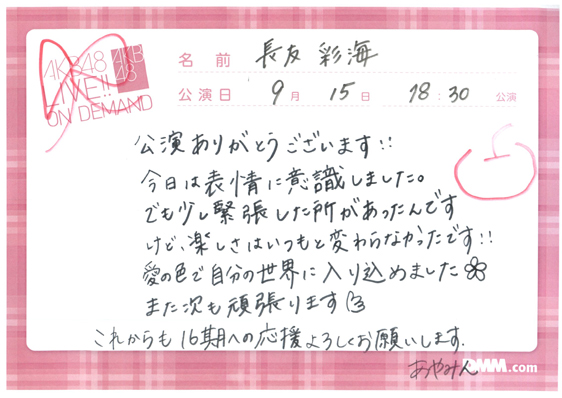 AKB48
LIVE!!
ON DEMAND
AKB
48
名前 長友 彩海
公演日 9月 15日 18:30 公演
公演ありがとうございます!!
今日は表情に意識しました。
でも少し緊張した所があったんです
けど、楽しさはいつもと変わらなかったです!!
愛の色で自分の世界に入り込めました
また次も頑張ります
これからも16期への応援よろしくお願いします.
あやみん
DMM.com